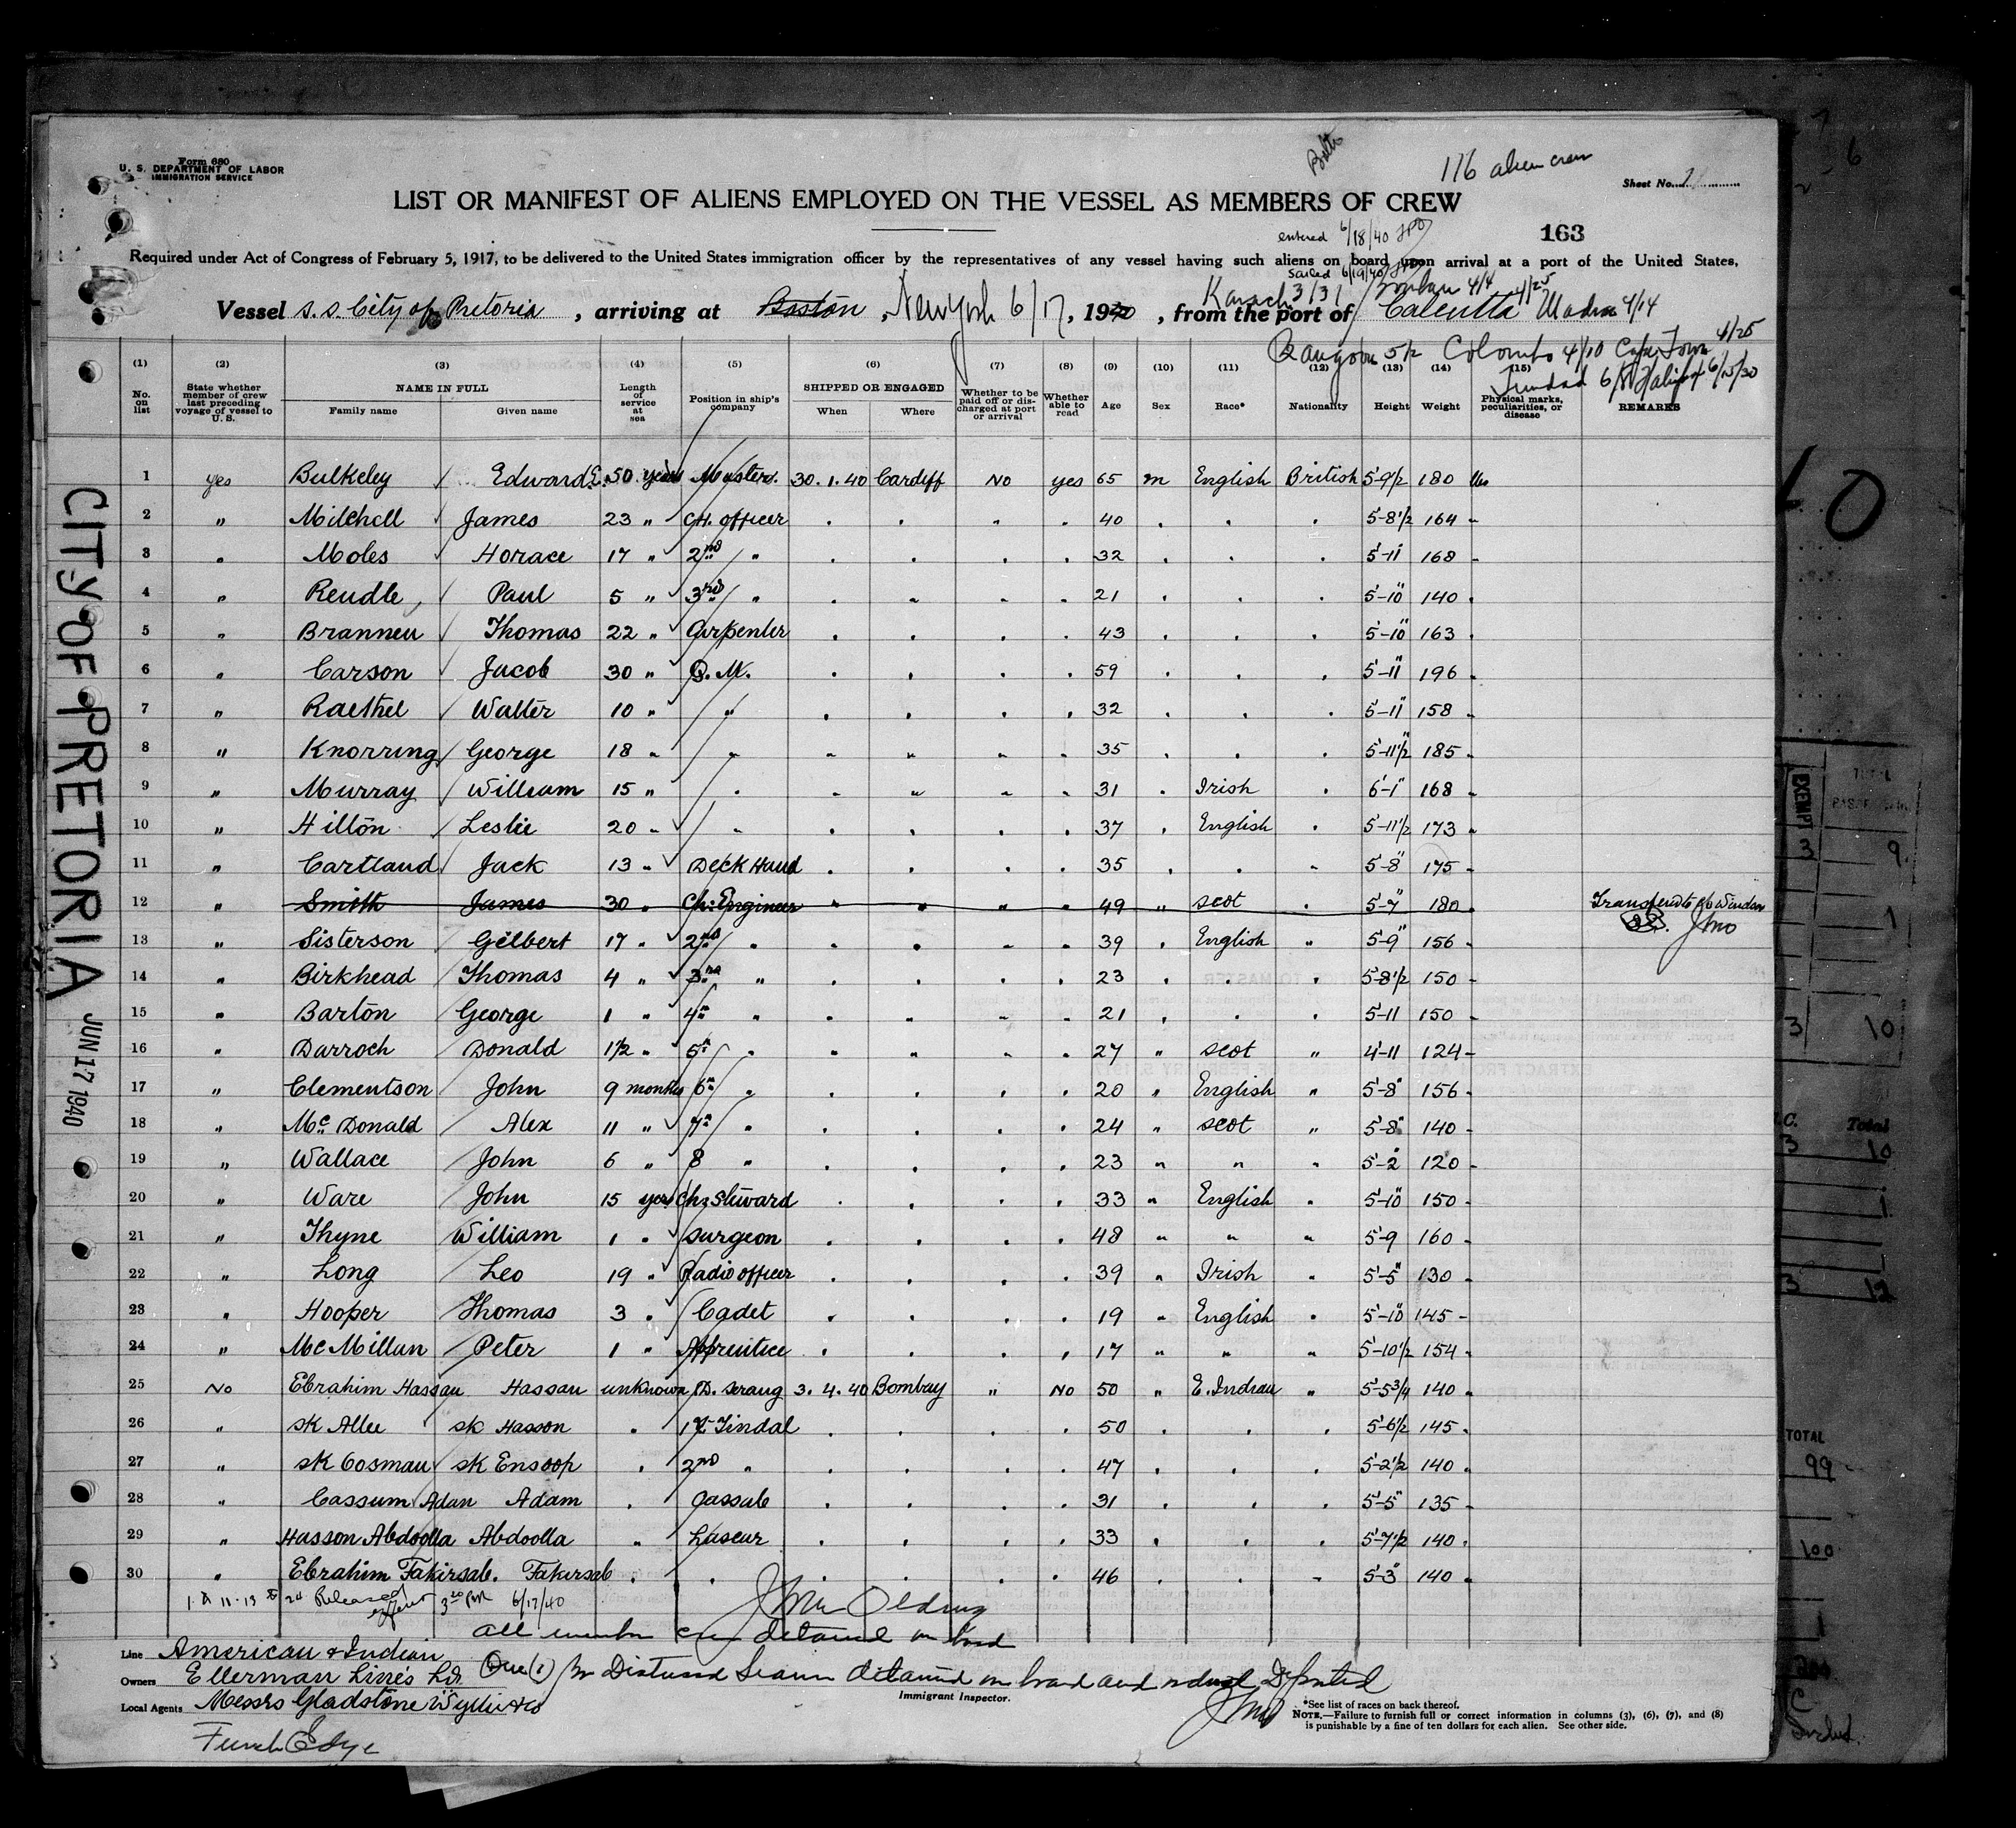 Form 680
U. S. DEPARTMENT OF LABOR
IMMIGRATION SERVICE
116 alien crew
Sheet No. 1
LIST OR MANIFEST OF ALIENS EMPLOYED ON THE VESSEL AS MEMBERS OF CREW
entered 6/18/40
163
Required under Act of Congress of February 5, 1917, to be delivered to the United States immigration officer by the representatives of any vessel having such aliens on board upon arrival at a port of the United States,
sailed 6/19/40
Karachi 3/31 Bombay 4/4 4/25
Vessel S.S. City of Pretoria, arriving at Boston, New York 6/17, 1940, from the port of Calcutta Madras 4/14
Rangoon 5/2 Colombo 4/10 Cape Town 4/25
Trinidad 6/8 Halifax 6/15/30
(1) (2) (3) (4) (5) (6) (7) (8) (9) (10) (11) (12) (13) (14) (15)
No. on list State whether member of crew last preceding voyage of vessel to U. S. NAME IN FULL Family name Given name Length of service at sea Position in ship's company SHIPPED OR ENGAGED When Where Whether to be paid off or discharged at port or arrival Whether able to read Age Sex Race* Nationality Height Weight Physical marks, peculiarities, or disease REMARKS
1 yes Bulkeley Edward E. 50 years Master. 30.1.40 Cardiff No yes 65 m English British 5-9 1/2 180
2 " Mitchell James 23 " CH. officer . . " . 40 . . . 5-8 1/2 164 "
3 " Moles Horace 17 " 2nd " . . . . 32 . . . 5-11 168 "
4 " Rendle Paul 5 " 3rd " . " " " 21 . . . 5-10" 140 .
5 " Brannen Thomas 22 " Carpenter . . . . 43 . . . 5-10" 163 .
6 " Carson Jacob 30 " Q.M. . . . . 59 . . . 5-11" 196 .
7 " Raethel Walter 10 " " . . . . 32 . . . 5-11" 158 .
8 " Knorring George 18 " " " " " " 35 . . . 5-11 1/2 185 .
9 " Murray William 15 " . " " " " 31 . Irish . 6-1" 168 .
10 " Hilton Leslie 20 " " . . . . 37 . English . 5-11 1/2 173 "
11 " Cartland Jack 13 " Deck Hand . . . . 35 . . " 5-8" 175 "
12 " Smith James 30 " Ch: Engineer " " " " 49 " scot . 5-7" 180 .
Transferred to
13 " Sisterson Gilbert 17 " 2nd " . . . . 39 . English " 5-9" 156 "
14 " Birkhead Thomas 4 " 3rd " . . . . 23 . . . 5-8 1/2 150 "
15 " Barton George 1 " 4th " . " " " 21 . . . 5-11 150 "
16 " Darroch Donald 1 1/2 " 5th " . " " . 27 " scot " 4-11 124 "
17 " Clementson John 9 months 6th " . . . . 20 " English " 5-8" 156 "
18 " McDonald Alex 11 " 7th " . . . . 24 " scot " 5-8" 140 "
19 " Wallace John 6 " 8 " . . . . 23 " " " 5-2" 120 "
20 " Ware John 15 years Ch: Steward . . . . 33 " English " 5-10" 150 "
21 " Thyne William 1 " surgeon . . . . 48 " " " 5-9 160 "
22 " Long Leo 19 " Radio officer . . . . 39 " Irish " 5-5" 130 "
23 " Hooper Thomas 3 . Cadet . . . . 19 " English . 5-10" 145 "
24 " McMillan Peter 1 " Apprentice . . . . 17 " " " 5-10 1/2 154 "
25 No Ebrahim Hassan Hassan unknown D. serang 3.4.40 Bombay " No 50 " E. Indian " 5-5 3/4 140 "
26 " SK Allee SK Hasson . 1st Tindal . . . . 50 . . . 5-6 1/2 145 .
27 " SK Oosman SK Ensoop . 2nd " . . . . 47 . . . 5-2 1/2 140 .
28 " Cassum Adam Adam . Cassab . . . . 31 . . . 5-5" 135 "
29 " Hasson Abdoolla Abdoolla " Lascar . . . . 33 . . . 5-7 1/2 140 .
30 " Ebrahim Fakirsab. Fakirsab . . . . . . 46 . . " 5-3" 140 "
Released 3 30 PM 6/17/40
All member crew detained on board
Line American & Indian
Owners Ellerman Lines Ld.
One (1) Distressed Seaman detained on board and ordered Deported
Immigrant Inspector.
Local Agents Messrs Gladstone Wyllie & Co
Funch Edye
*See list of races on back thereof.
NOTE.—Failure to furnish full or correct information in columns (3), (6), (7), and (8)
is punishable by a fine of ten dollars for each alien. See other side.
CITY OF PRETORIA JUN 17 1940
10
EXEMPT
TOTAL
3 9
1
3 10
Total
3 10
1
1
3 12
TOTAL
99
100
1